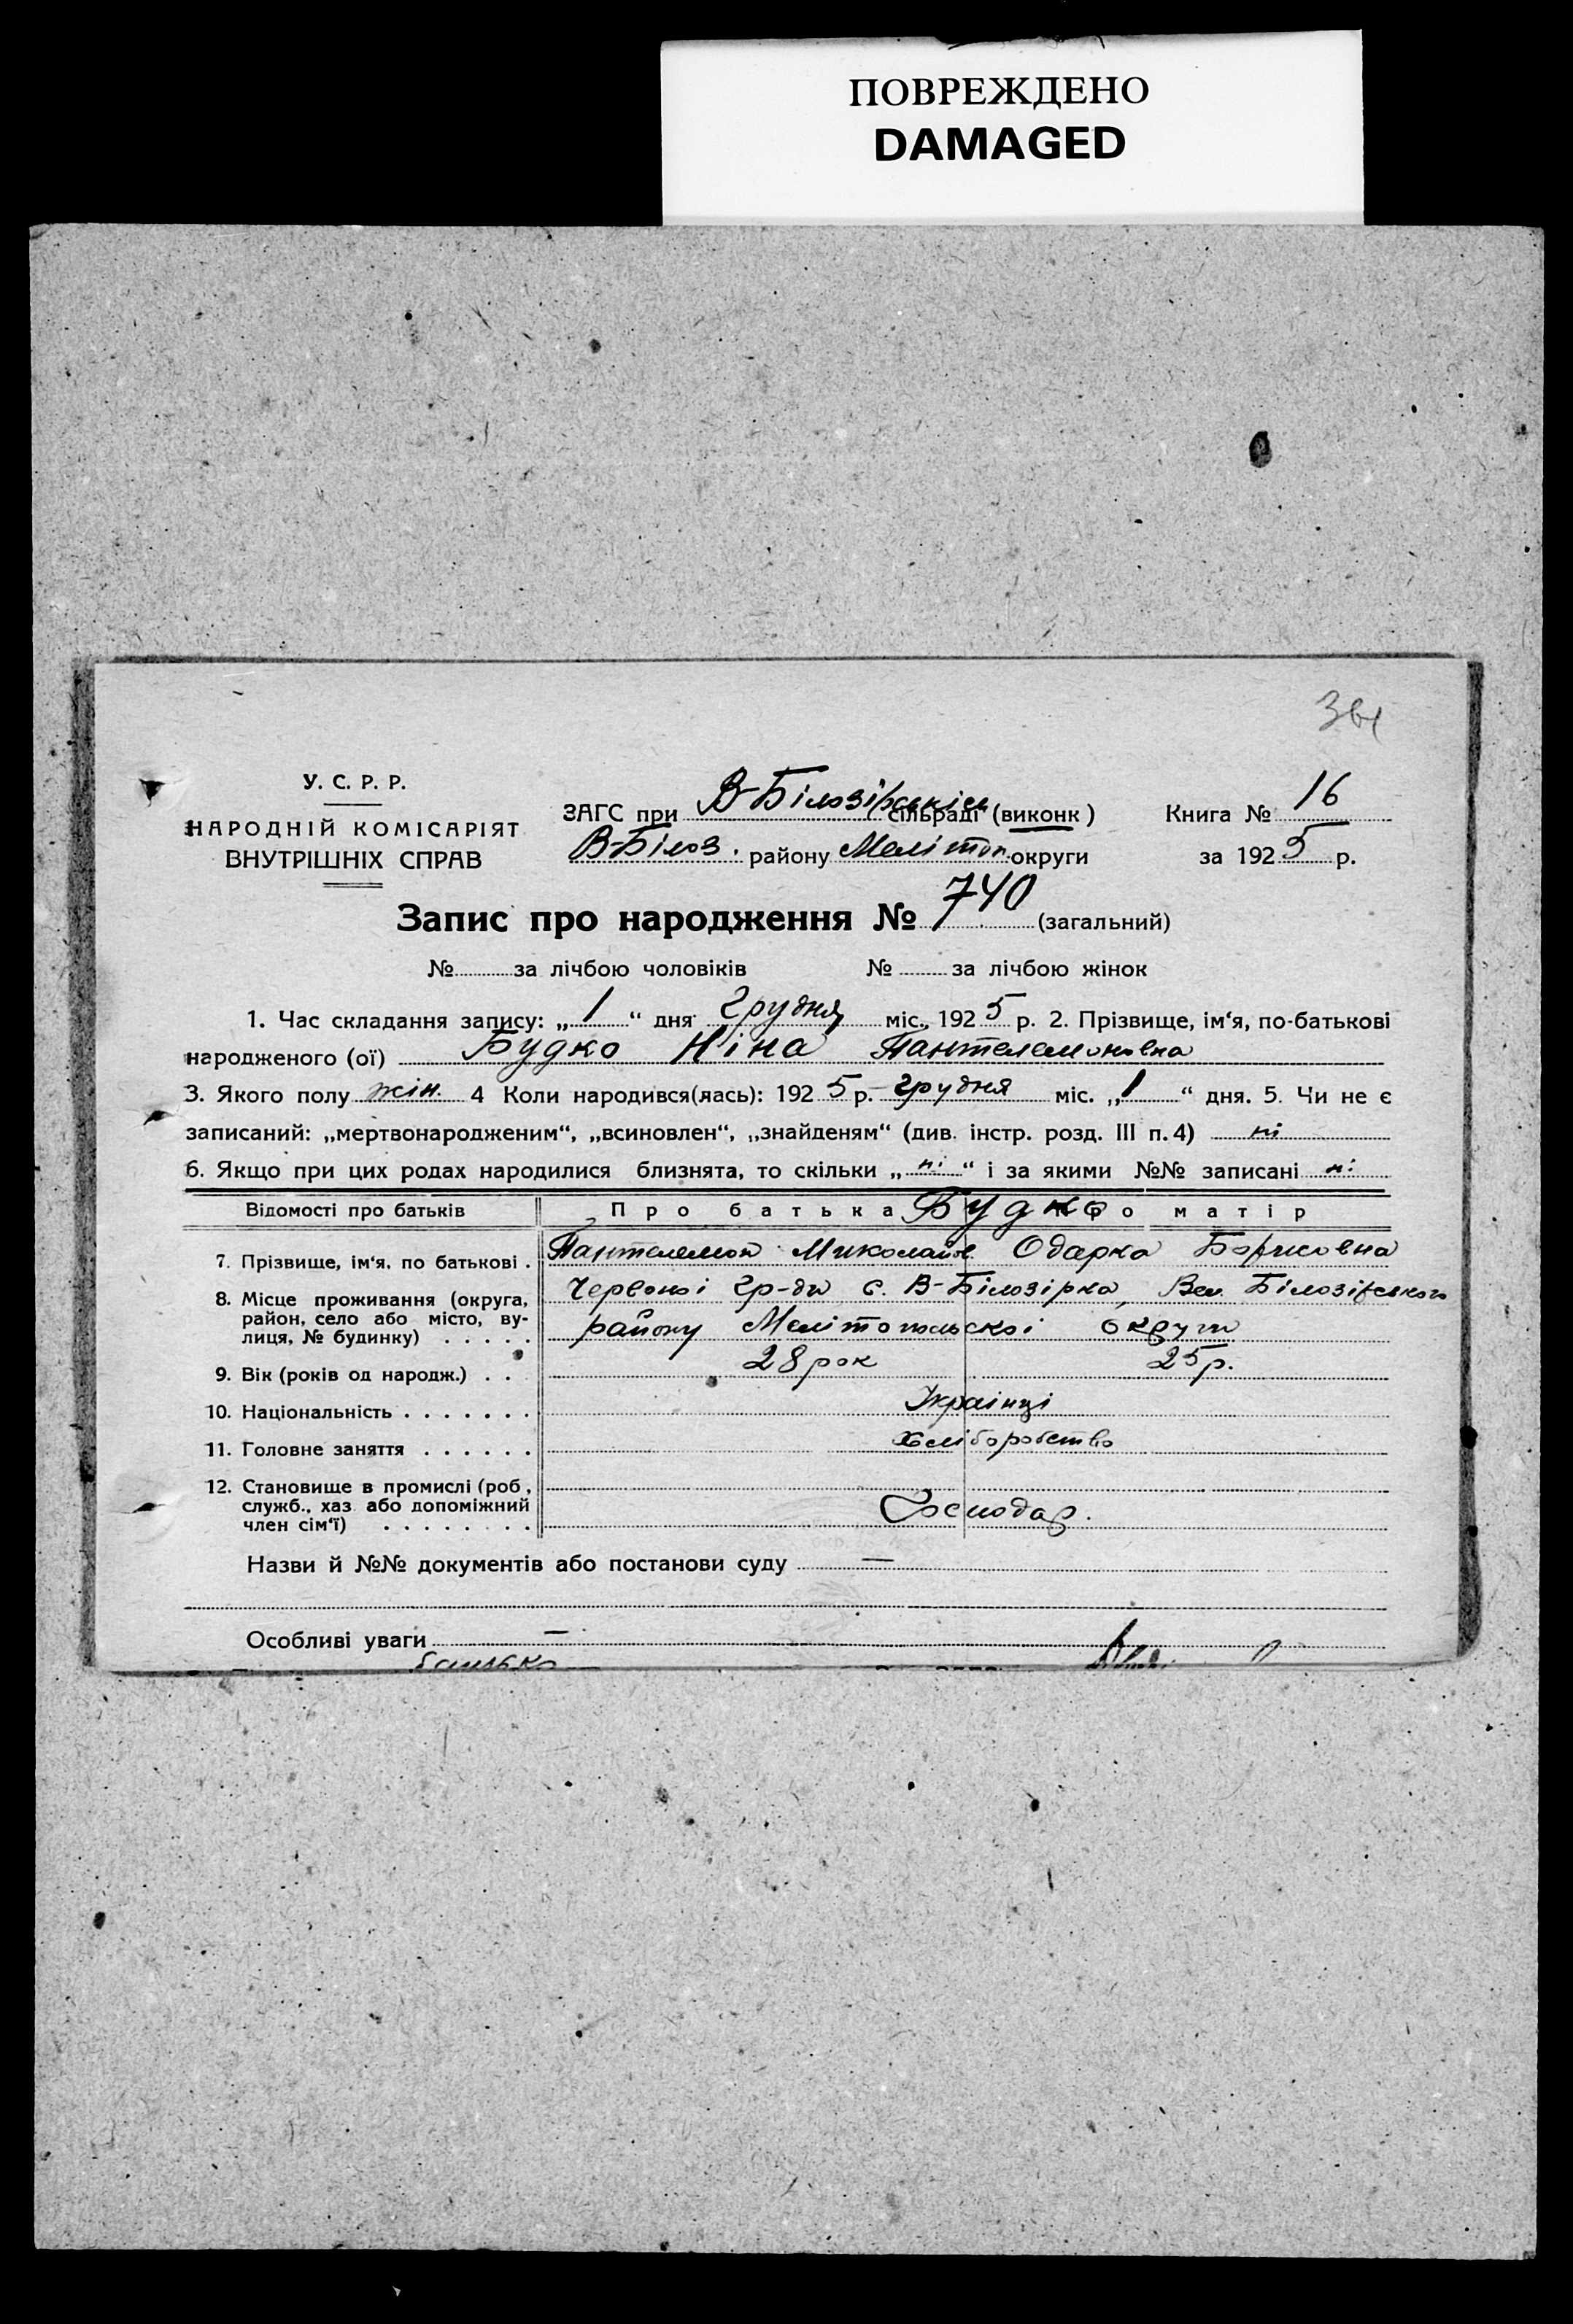 ПОВРЕЖДЕНО
DAMAGED
У. С. Р. Р.
НАРОДНІЙ КОМІСАРІЯТ
ВНУТРІШНІХ СПРАВ
ЗАГС при В-Білозірській сільраді (виконк) Книга № 16
В-Білоз. району Мелітоп. округи за 1925 р.
Запис про народження № 740 (загальний)
№ за лічбою чоловіків № за лічбою жінок
1. Час складання запису: „1“ дня грудня міс., 1925 р. 2. Прізвище, ім‘я, по-батькові
народженого (ої) Будко Ніна Пантелемоновна
3. Якого полу жін. 4 Коли народився(лась): 1925 р. грудня міс. „1“ дня. 5. Чи не є
записаний: „мертвонародженим“, „всиновлен“, „знайденям“ (див. інстр. розд. III п. 4) ні
6. Якщо при цих родах народилися близнята, то скільки „ні“ і за якими №№ записані ні
Відомості про батьків Про батька Будко Про матір
7. Прізвище, ім‘я, по батькові . Пантелемон Миколайов. Одарка Борисовна
8. Місце проживання (округа, Червоної гр-ди с. В-Білозірка, Вел. Білозірського
район, село або місто, ву-
лиця, № будинку) . . . . . району Мелітопольскоі округи
9. Вік (років од народж.) . . 28 рок 25 р.
10. Національність . . . . . . . Украінці
11. Головне заняття . . . . . . Хліборобство
12. Становище в промислі (роб,
служб., хаз або допоміжний
член сім‘ї) . . . . . . . . Господар.
Назви й №№ документів або постанови суду —
Особливі уваги —
батько